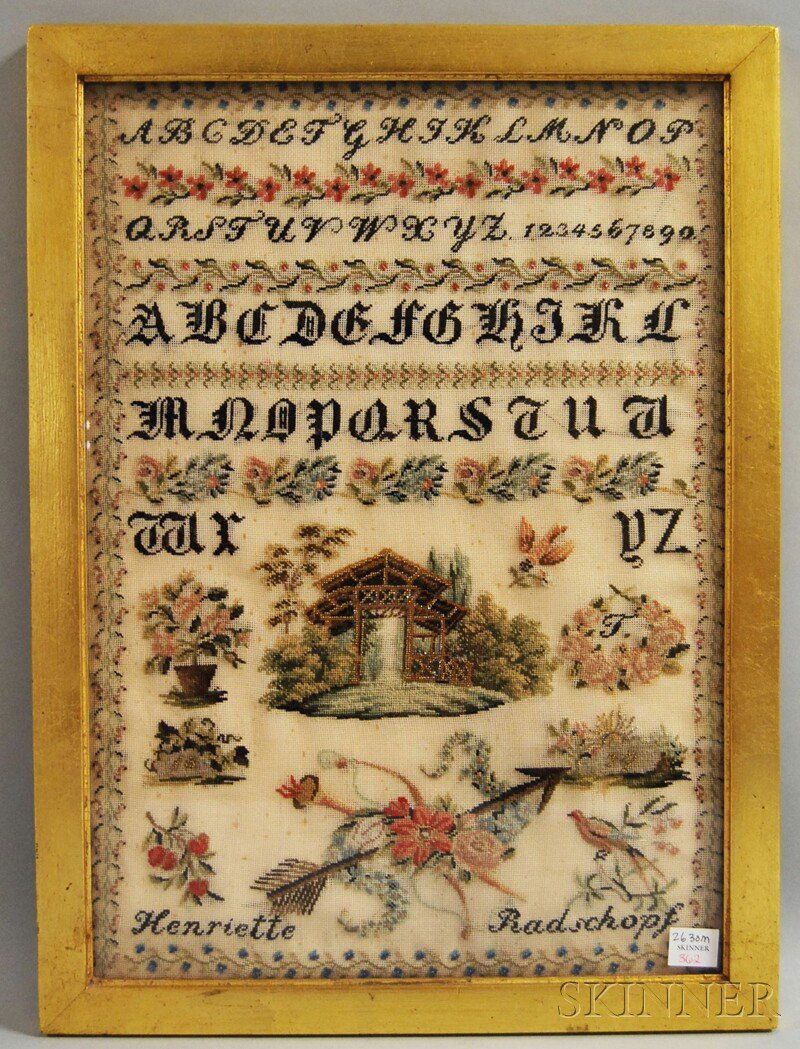 A B C D E F G H I K L M N O P
Q R S T U V W X Y Z. 1234567890.
A B C D E F G H I K L
M N O P Q R S T U V
W X Y Z
T.
Henriette Radschopf
2630m
SKINNER
362
SKINNER